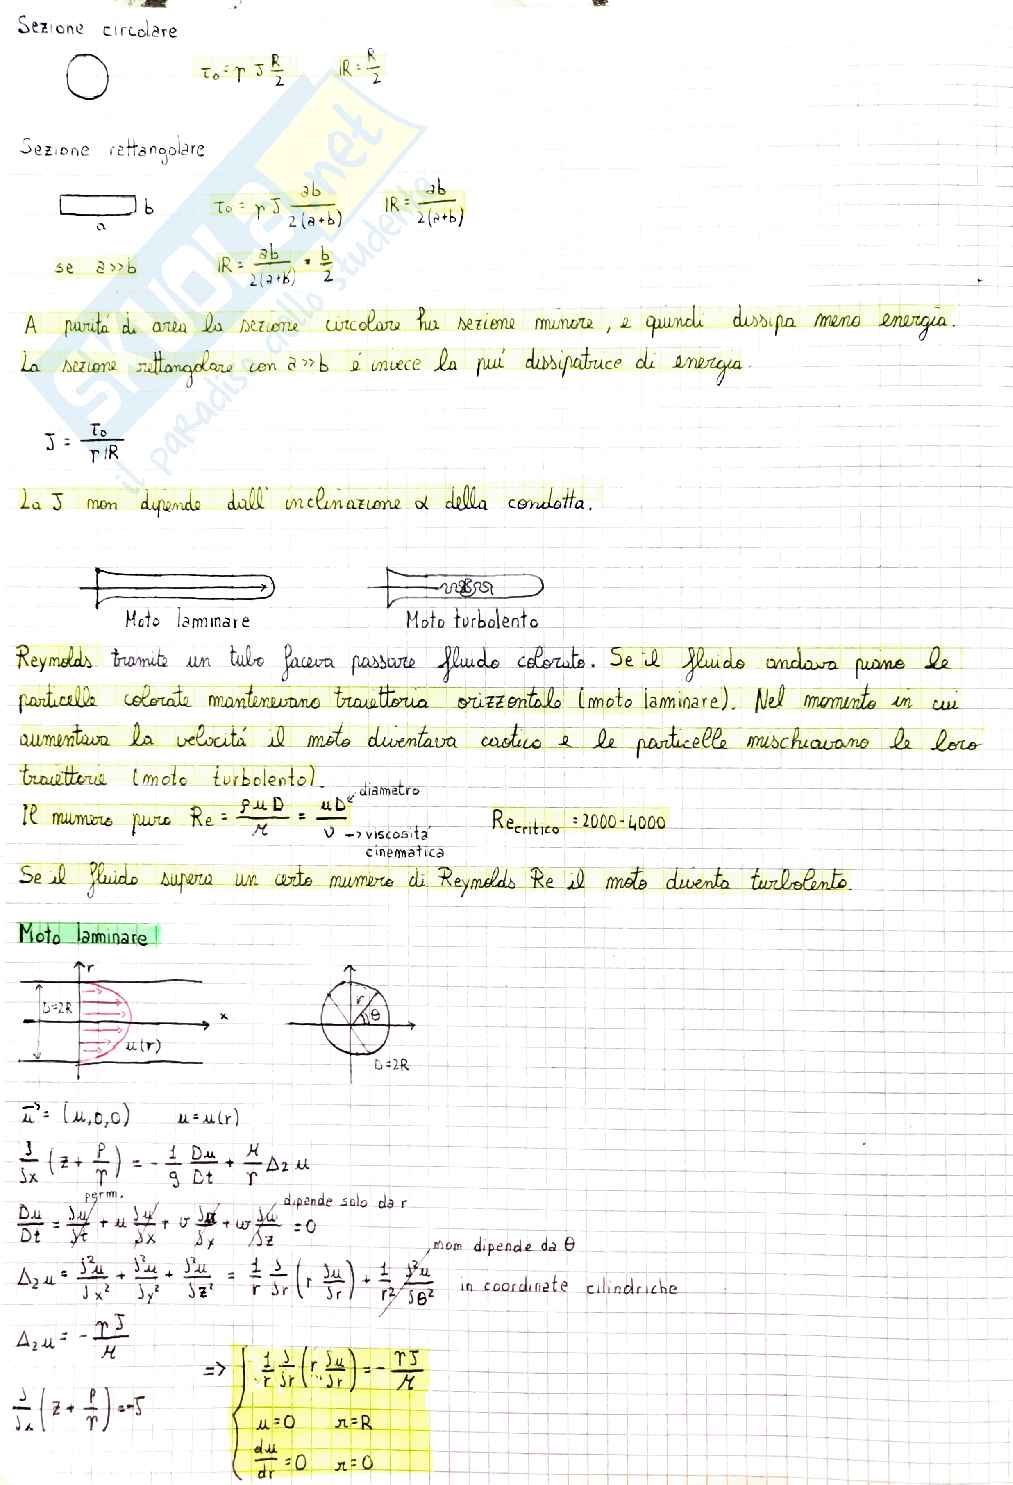 Sezione circolare
τ₀ = γ J R/2    ℝ = R/2
Sezione rettangolare
b
a
τ₀ = γ J ab/2(a+b)    ℝ = ab/2(a+b)
se a>>b    ℝ = ab/2(a+b) = b/2
A parità di area la sezione circolare ha sezione minore, e quindi dissipa meno energia.
La sezione rettangolare con a>>b é invece la puí dissipatrice di energia.
J = τ₀/γℝ
La J non dipende dall'inclinazione α della condotta.
Moto laminare    Moto turbolento
Reynolds tramite un tubo faceva passare fluido colorato. Se il fluido andava piano le
particelle colorate mantenevano traiettoria orizzontale (moto laminare). Nel momento in cui
aumentava la velocitá il moto diventava caotico e le particelle mischiavano le loro
traiettorie (moto turbolento).
diametro
Il numero puro Re = ρuD/μ = uD/ν → viscositá cinematica    Re critico = 2000-4000
Se il fluido supera un certo numero di Reynolds Re il moto diventa turbolento.
Moto laminare
r
D=2R
x
u(r)
r
θ
D=2R
u⃗ = (u,0,0)    u=u(r)
∂/∂x (z + p/γ) = - 1/g Du/Dt + μ/γ Δ₂u
perm.    dipende solo da r
Du/Dt = ∂u/∂t + u ∂u/∂x + v ∂u/∂y + w ∂u/∂z = 0
non dipende da θ
Δ₂u = ∂²u/∂x² + ∂²u/∂y² + ∂²u/∂z² = 1/r ∂/∂r (r ∂u/∂r) + 1/r² ∂²u/∂θ²    in coordinate cilindriche
Δ₂u = - γJ/μ
∂/∂x (z + p/γ) = -J
⇒ { 1/r ∂/∂r (r ∂u/∂r) = - γJ/μ
u=0    r=R
du/dr = 0    r=0
SKUOLA.net
il paradiso dello studente